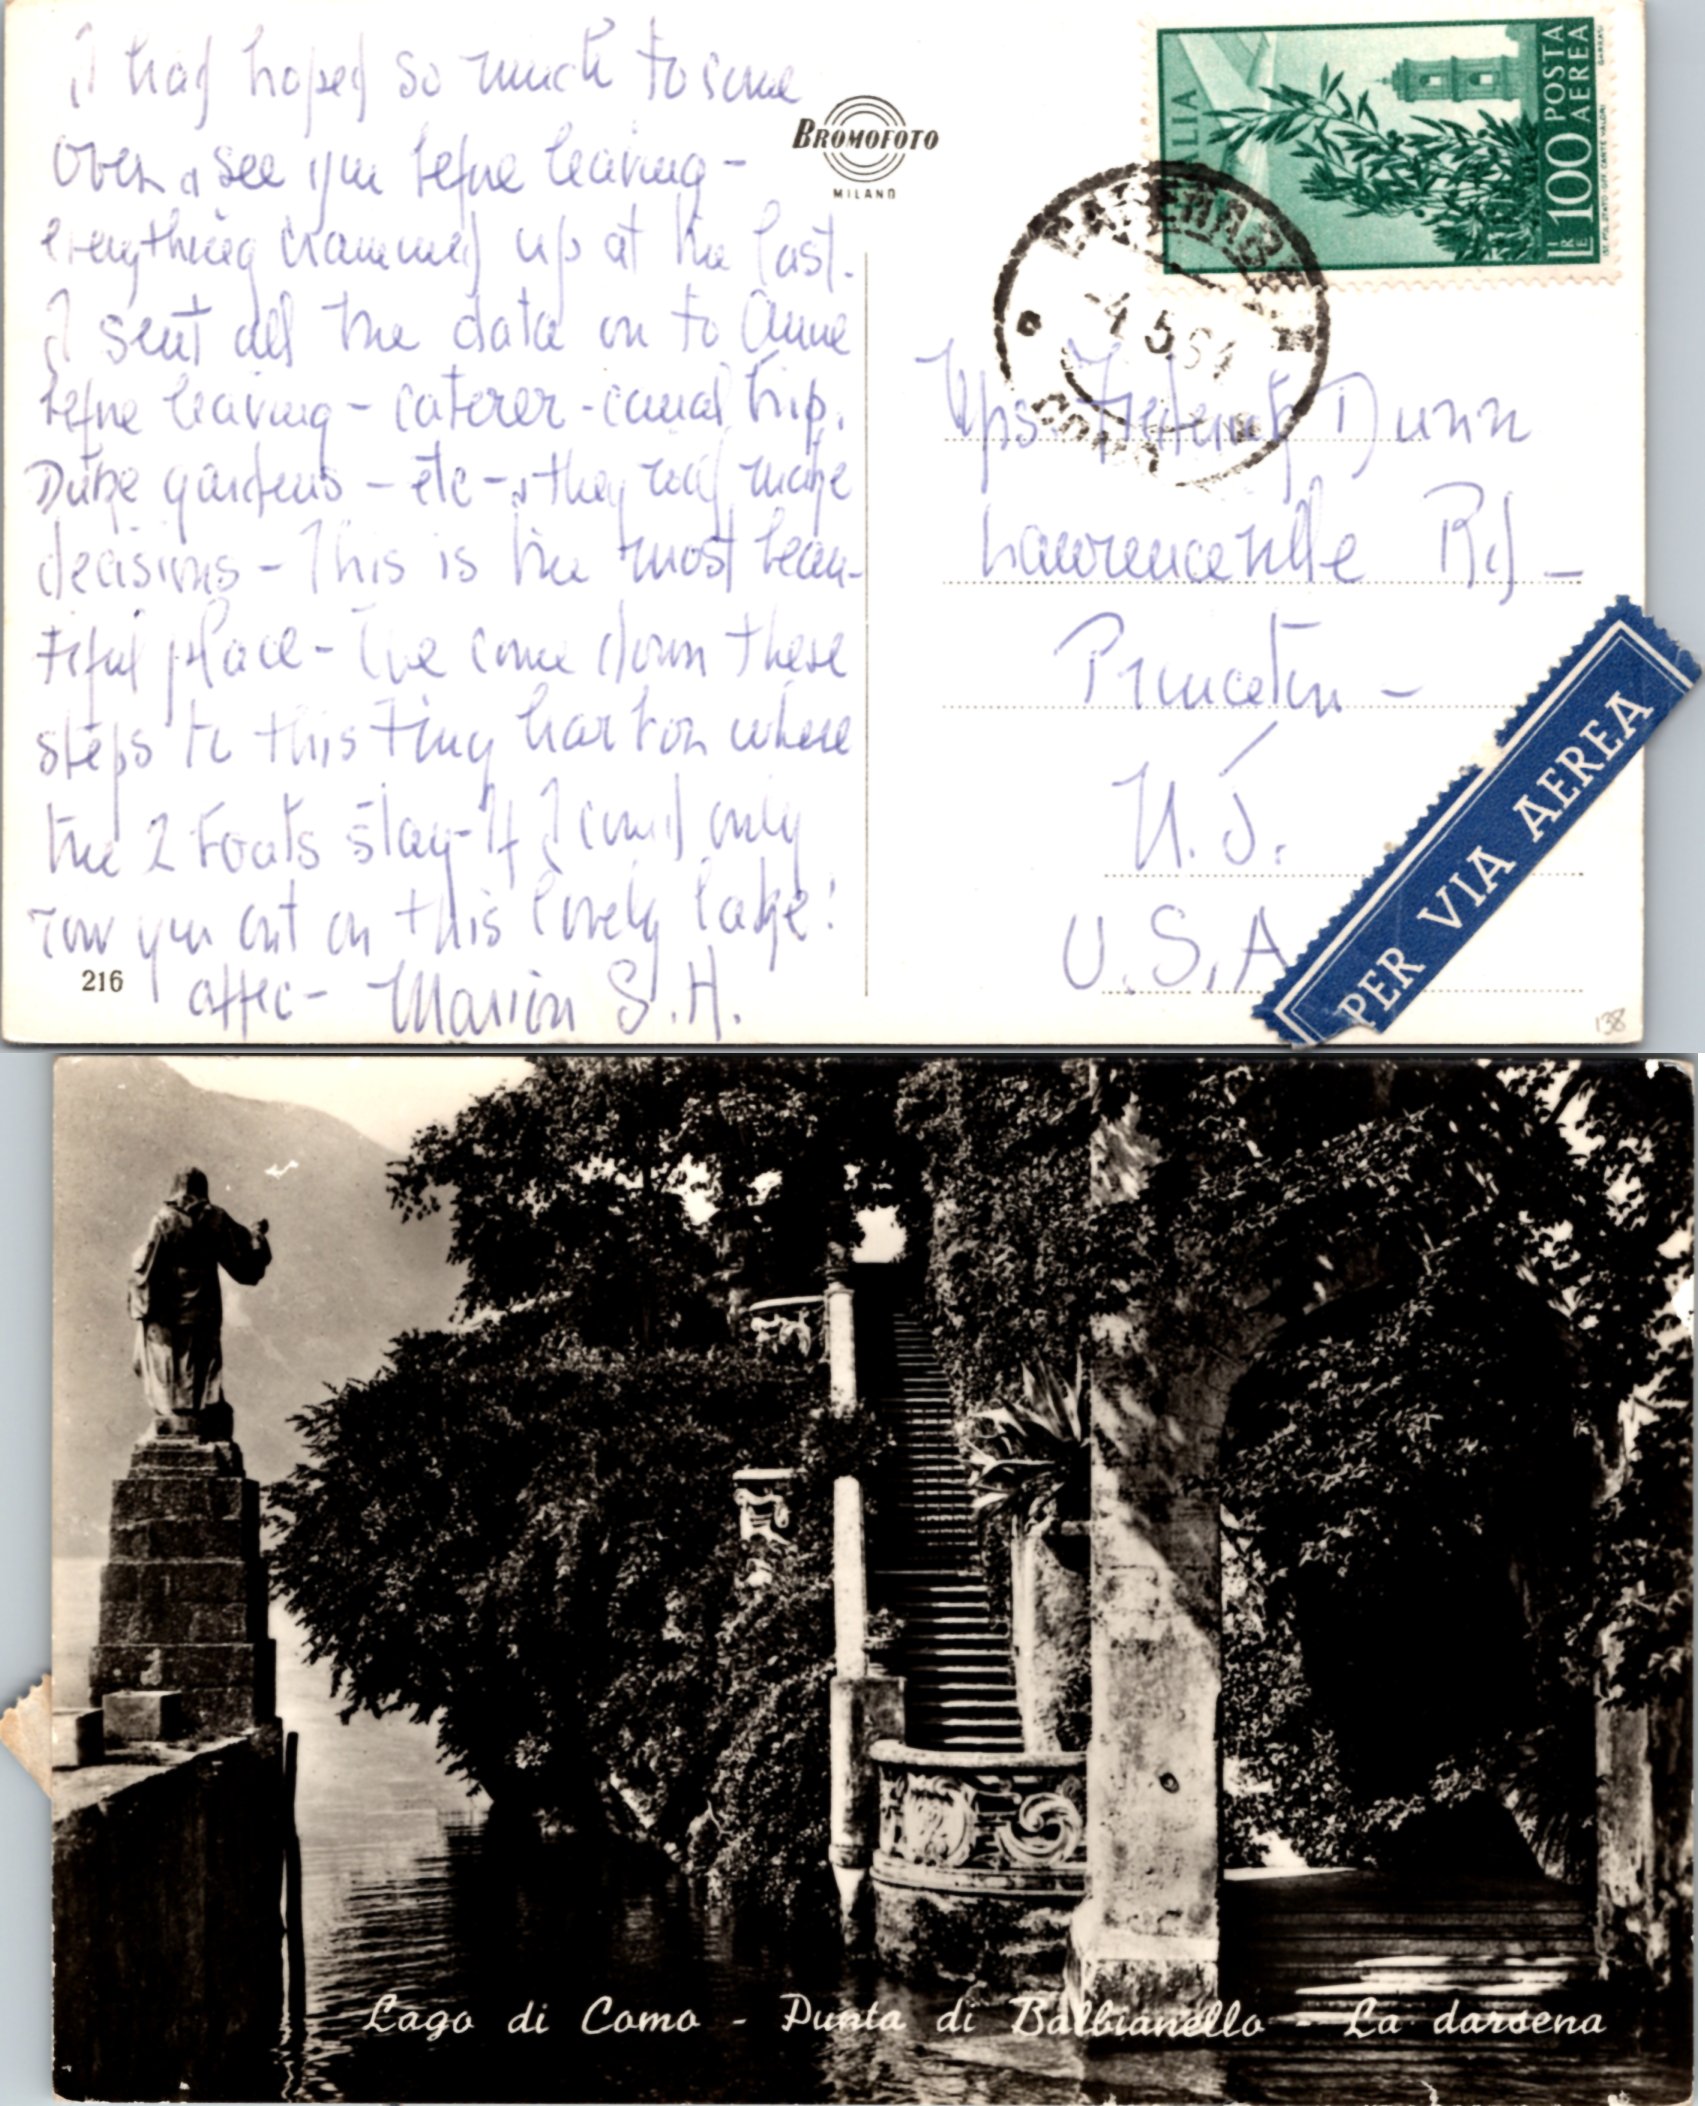 I had hoped so much to come
over & see you before leaving -
everything crammed up at the last.
I sent all the data on to Anne
before leaving - caterer - canal trip.
Duke gardens - etc - & they will make
decisions - This is the most beau-
tiful place - I've come down these
steps to this tiny harbor where
the 2 boats stay - If I could only
row you out on this lovely lake!
affec - Marion S. H.
216
BROMOFOTO
MILANO
ITALIA
LIRE 100 POSTA AEREA
IST. POL. STATO OFF. CARTE VALORI
-4.5.61
COMO
Mrs. Frederick Dunn
Lawrenceville Rd -
Princeton -
N. J.
U.S.A
PER VIA AEREA
138
Lago di Como - Punta di Balbianello - La darsena